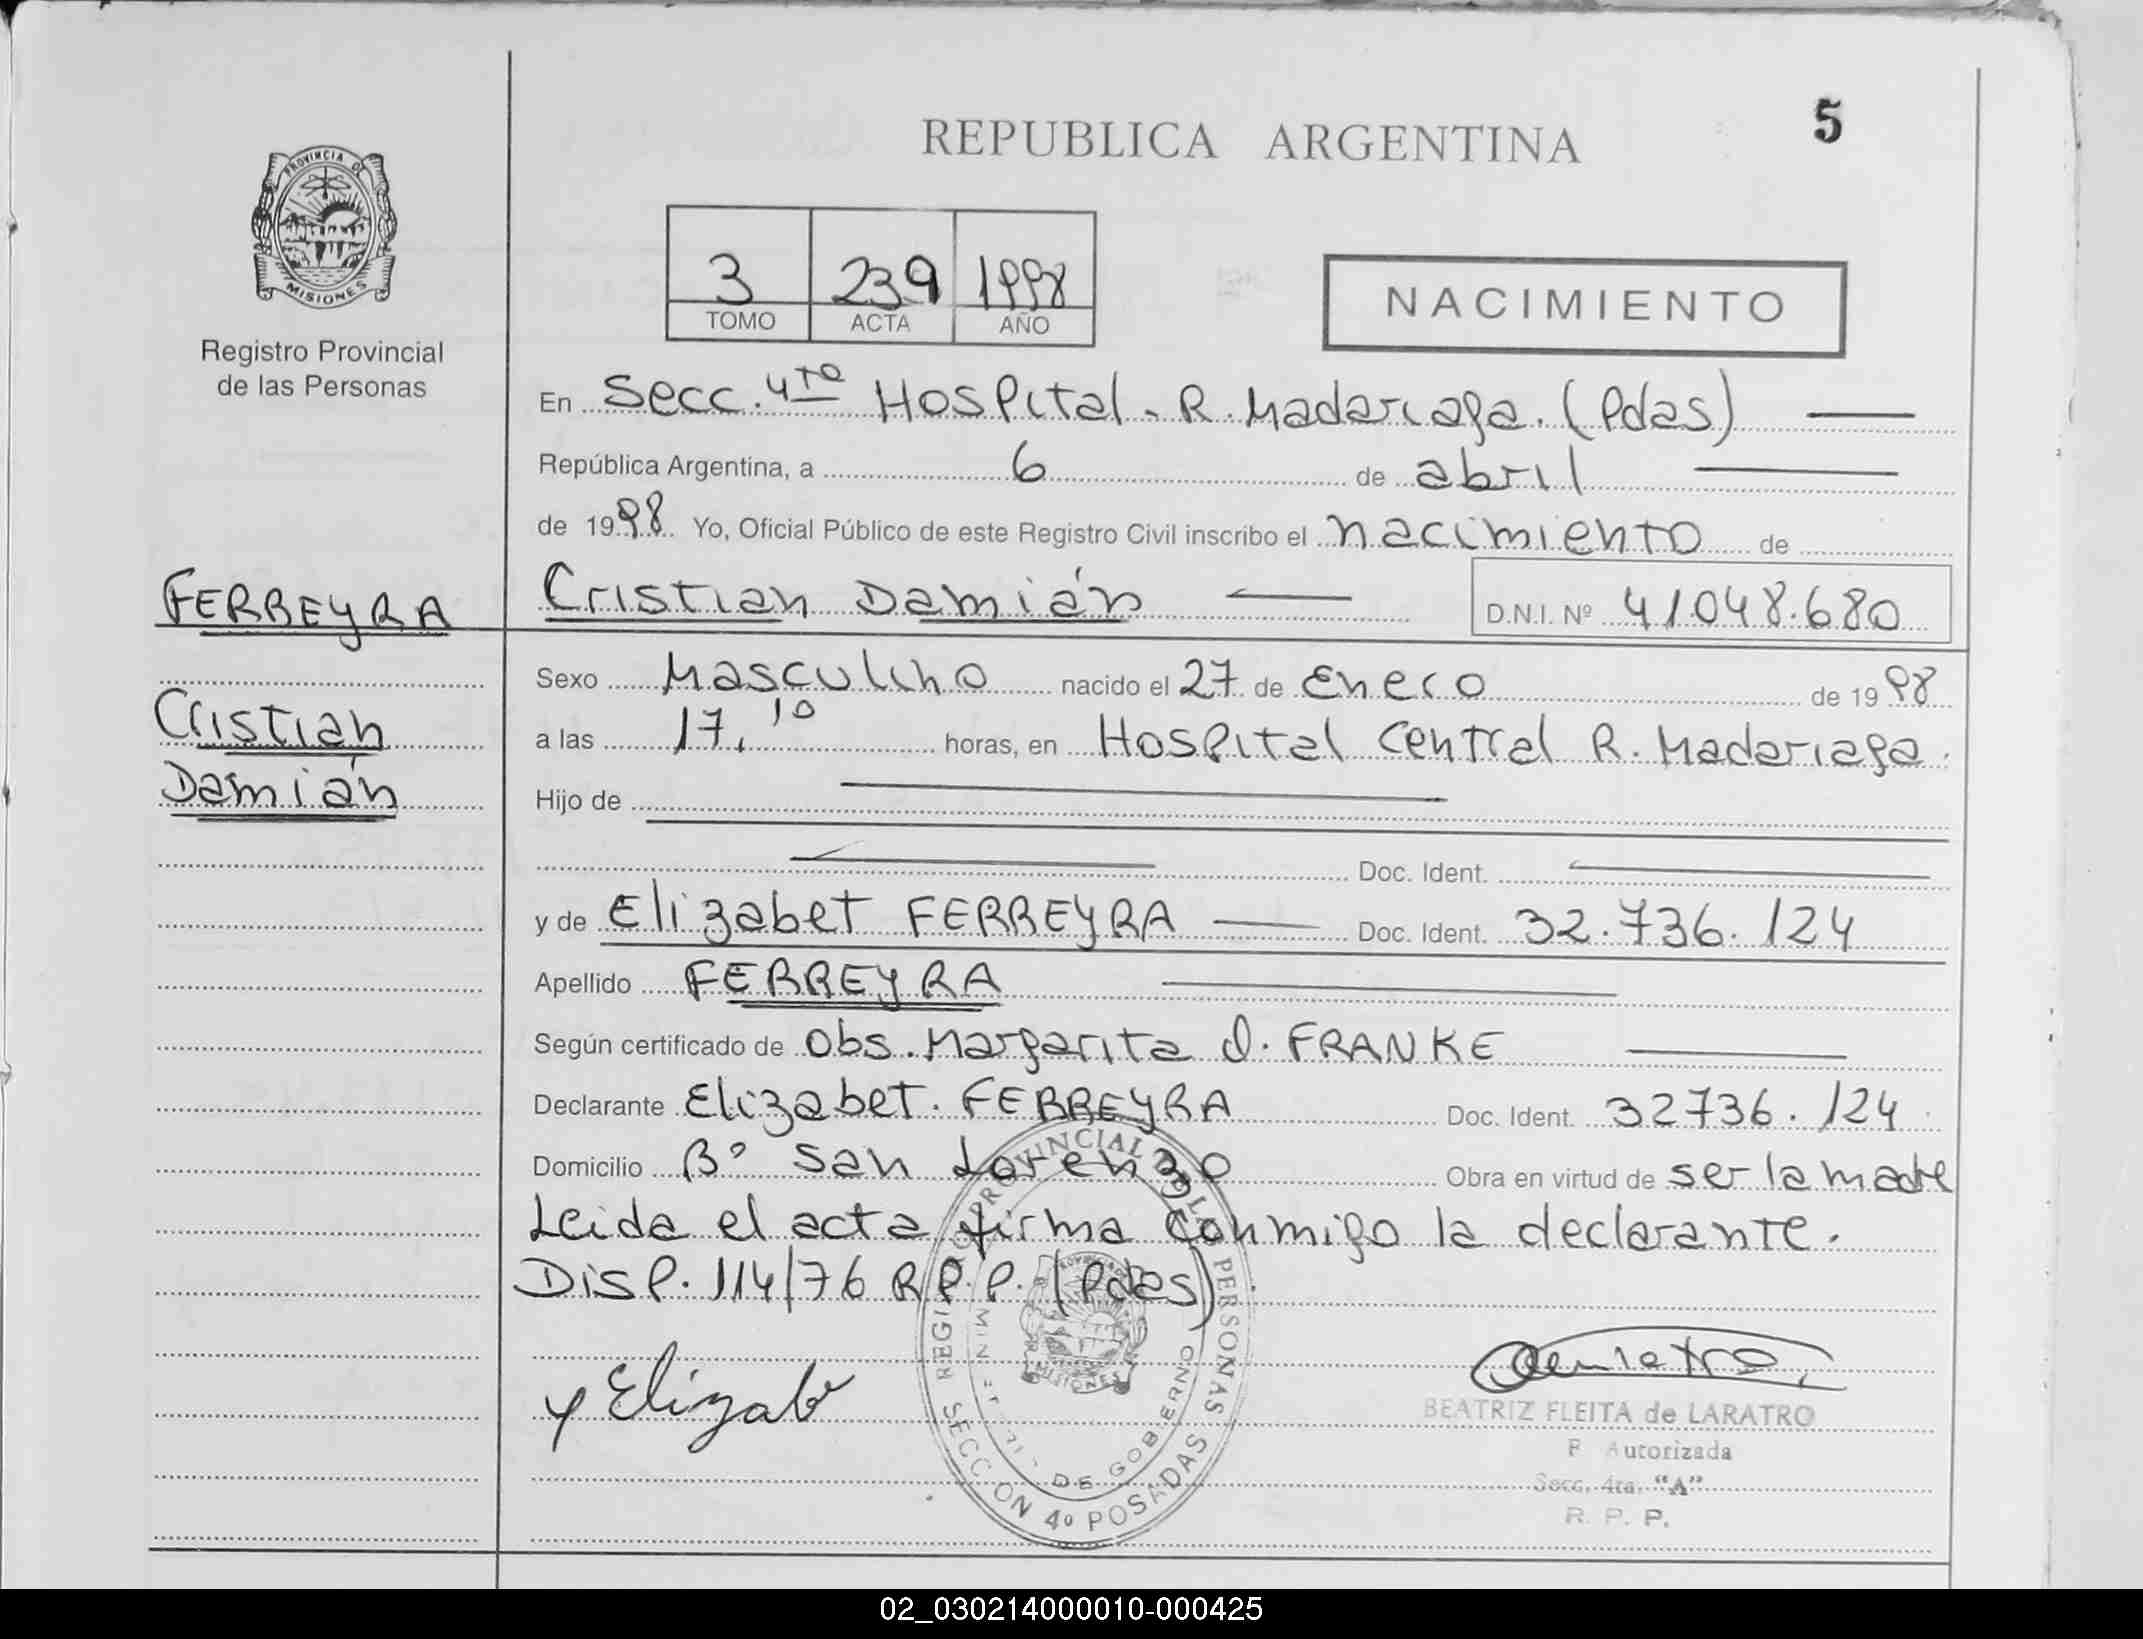 5
REPUBLICA ARGENTINA
PROVINCIA DE
MISIONES
Registro Provincial
de las Personas
3 239 1998
TOMO ACTA AÑO
NACIMIENTO
En Secc. 4ta Hospital - R. Madariaga. (Pdas)
República Argentina, a 6 de abril
de 1998 Yo, Oficial Público de este Registro Civil inscribo el nacimiento de
FERREYRA
Cristian Damián D.N.I. Nº 41.048.680
Cristian
Damián
Sexo Masculino nacido el 27 de Enero de 1998
a las 17,10 horas, en Hospital Central R. Madariaga.
Hijo de
Doc. Ident.
y de Elizabet FERREYRA Doc. Ident. 32.736.124
Apellido FERREYRA
Según certificado de Obs. Margarita D. FRANKE
Declarante Elizabet. FERREYRA Doc. Ident. 32736.124
Domicilio Bº San Lorenzo Obra en virtud de ser la madre
Leida el acta firma conmigo la declarante.
Disp. 114/76 R.P.P. (Pdas)
REGISTRO PROVINCIAL DE LAS PERSONAS
DE GOBIERNO
MISIONES
SECCION 4º POSADAS
Elizab
BEATRIZ FLEITA de LARATRO
F Autorizada
Secc. 4ta. "A"
R. P. P.
02_030214000010-000425